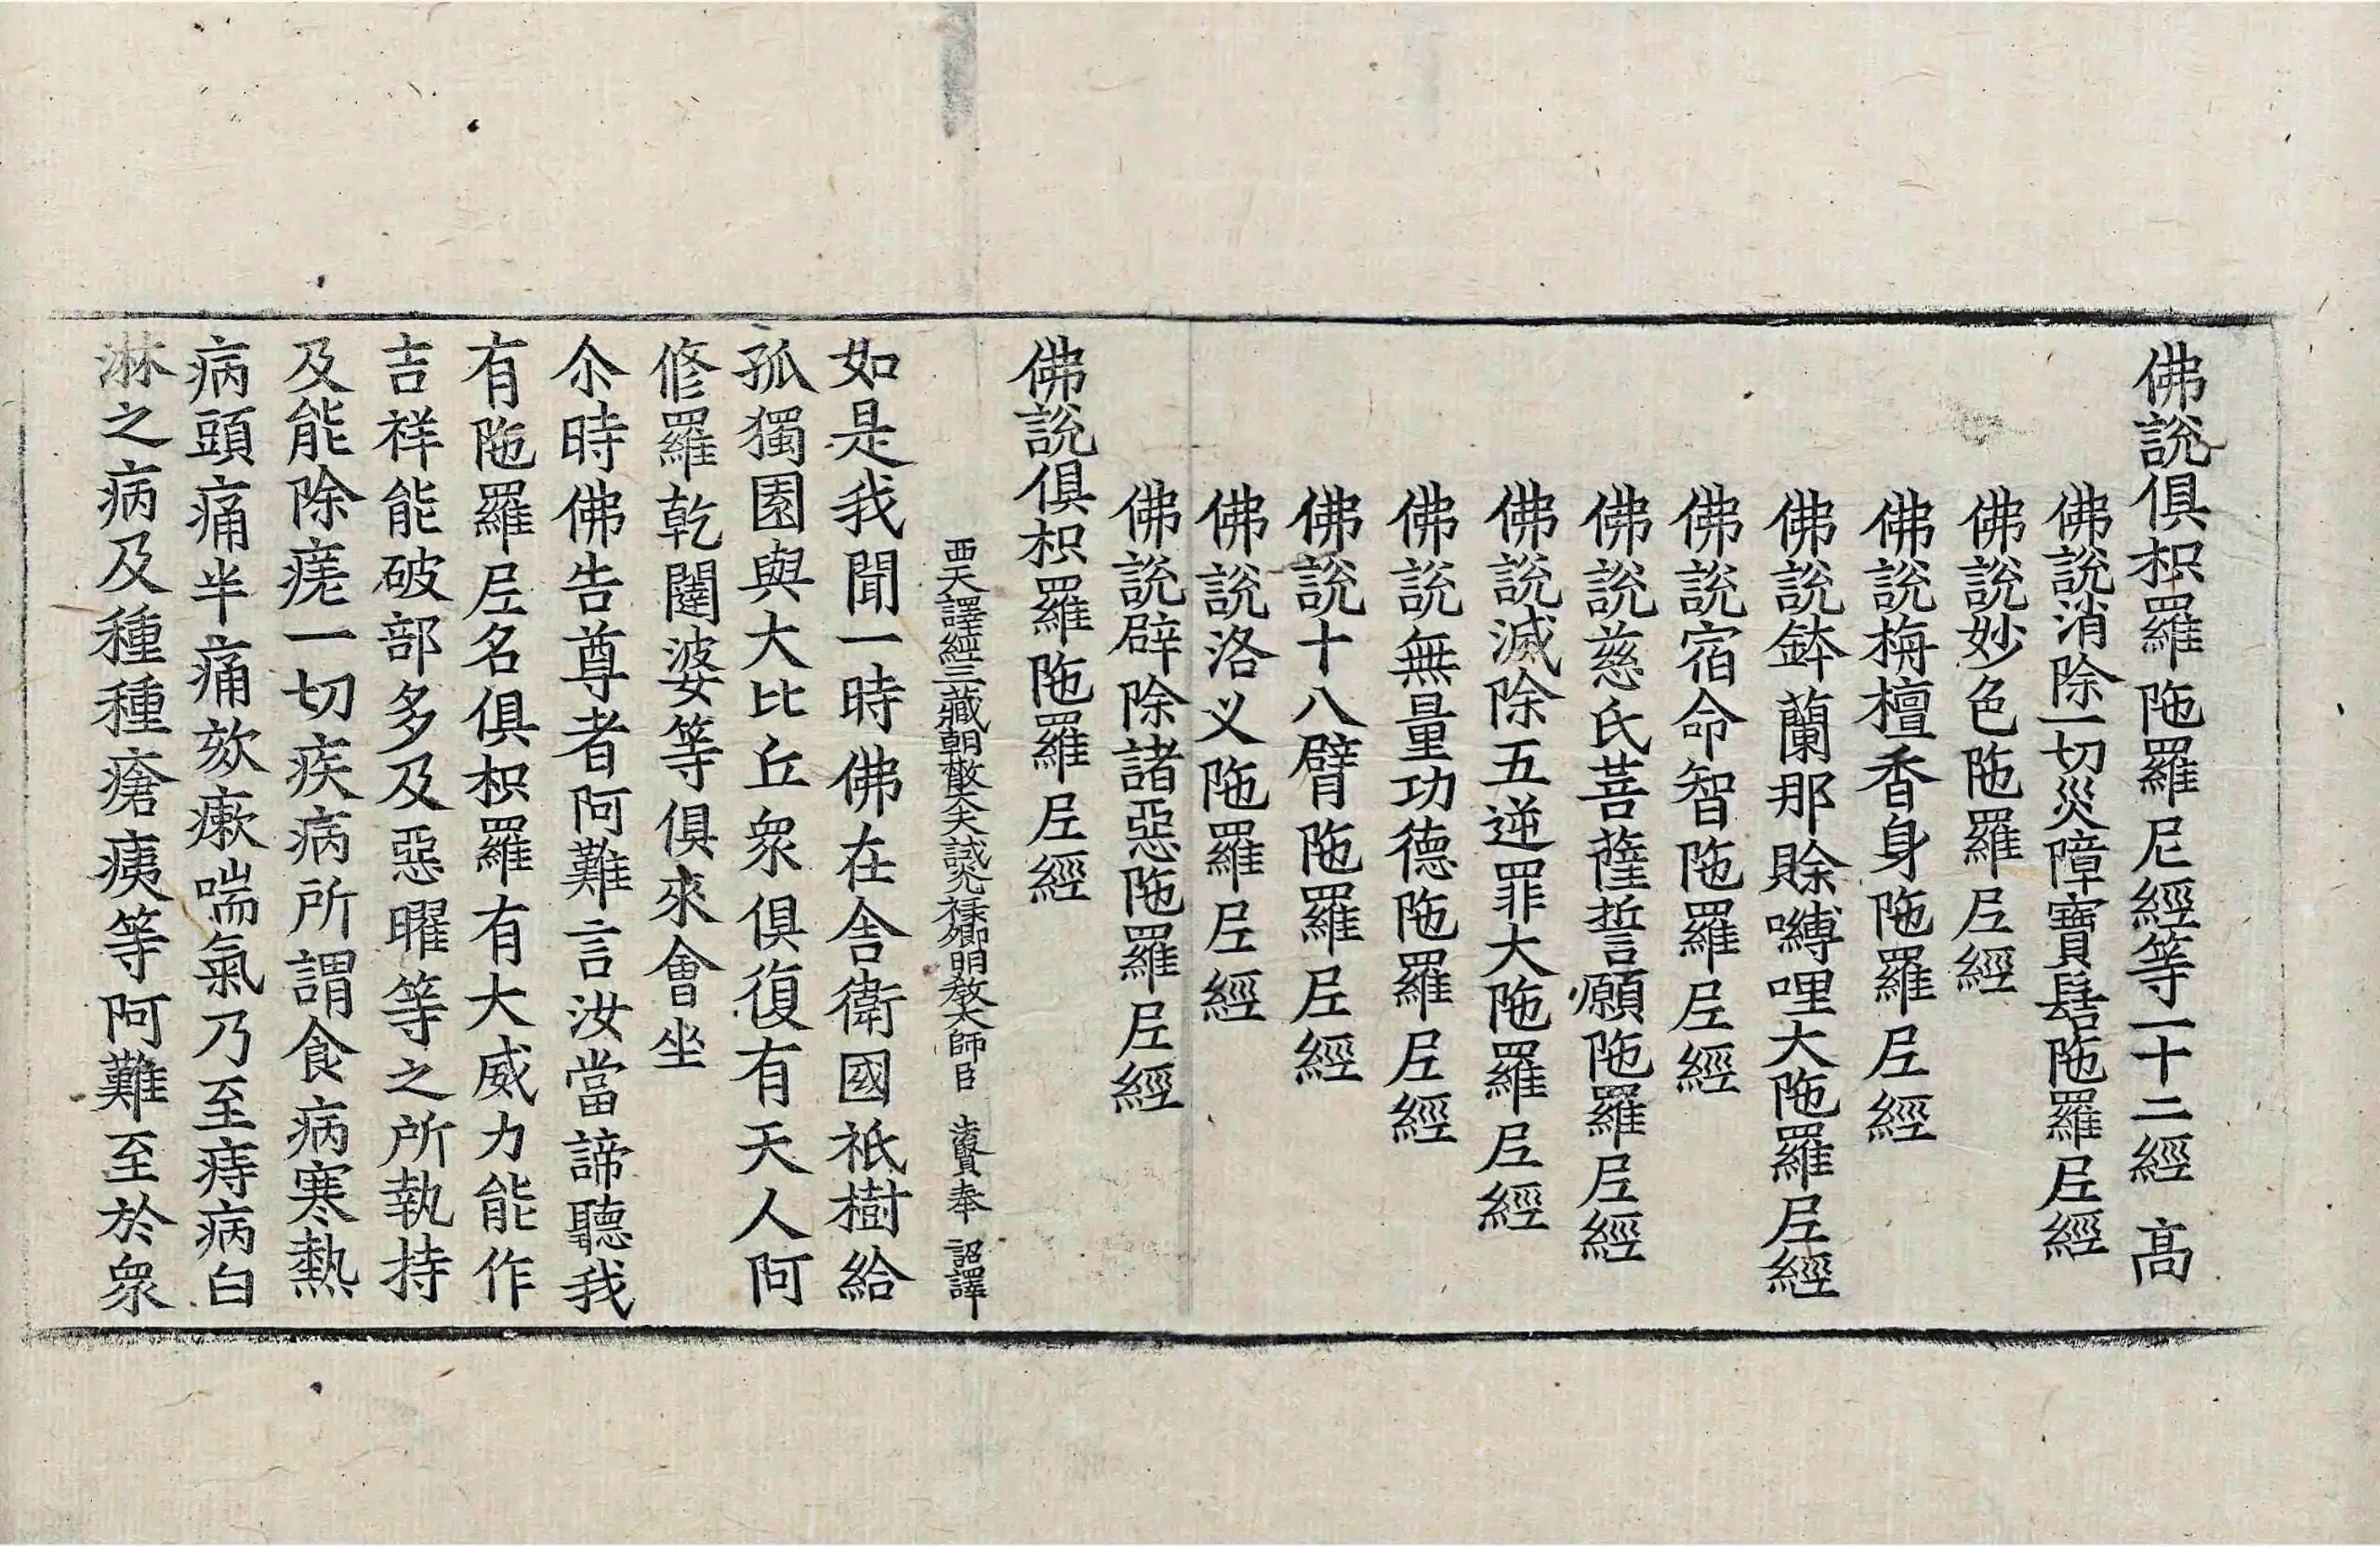 佛說俱枳羅陁羅尼經等一十二經 髙
佛說消除一切災障寶髻陁羅𡰱經
佛說妙色陁羅𡰱經
佛說栴檀香身陁羅𡰱經
佛說鉢蘭那賒嚩哩大陁羅𡰱經
佛說宿命智陁羅𡰱經
佛說慈氏菩薩誓願陁羅𡰱經
佛說滅除五逆罪大陁羅𡰱經
佛說無量功德陁羅𡰱經
佛說十八臂陁羅𡰱經
佛說洛叉陁羅𡰱經
佛說辟除諸惡陁羅𡰱經
佛說俱枳羅陁羅𡰱經
西天譯經三藏朝散大夫試光祿卿明教大師臣 法賢奉 詔譯
如是我聞一時佛在舍衛國祇樹給
孤獨園與大比丘衆俱復有天人阿
修羅乾闥婆等俱來會坐
尒時佛告尊者阿難言汝當諦聽我
有陁羅𡰱名俱枳羅有大威力能作
吉祥能破部多及惡曜等之所執持
及能除㾗一切疾病所謂食病寒熱
病頭痛半痛欬瘶喘氣乃至痔病白
淋之病及種種瘡痍等阿難至於衆